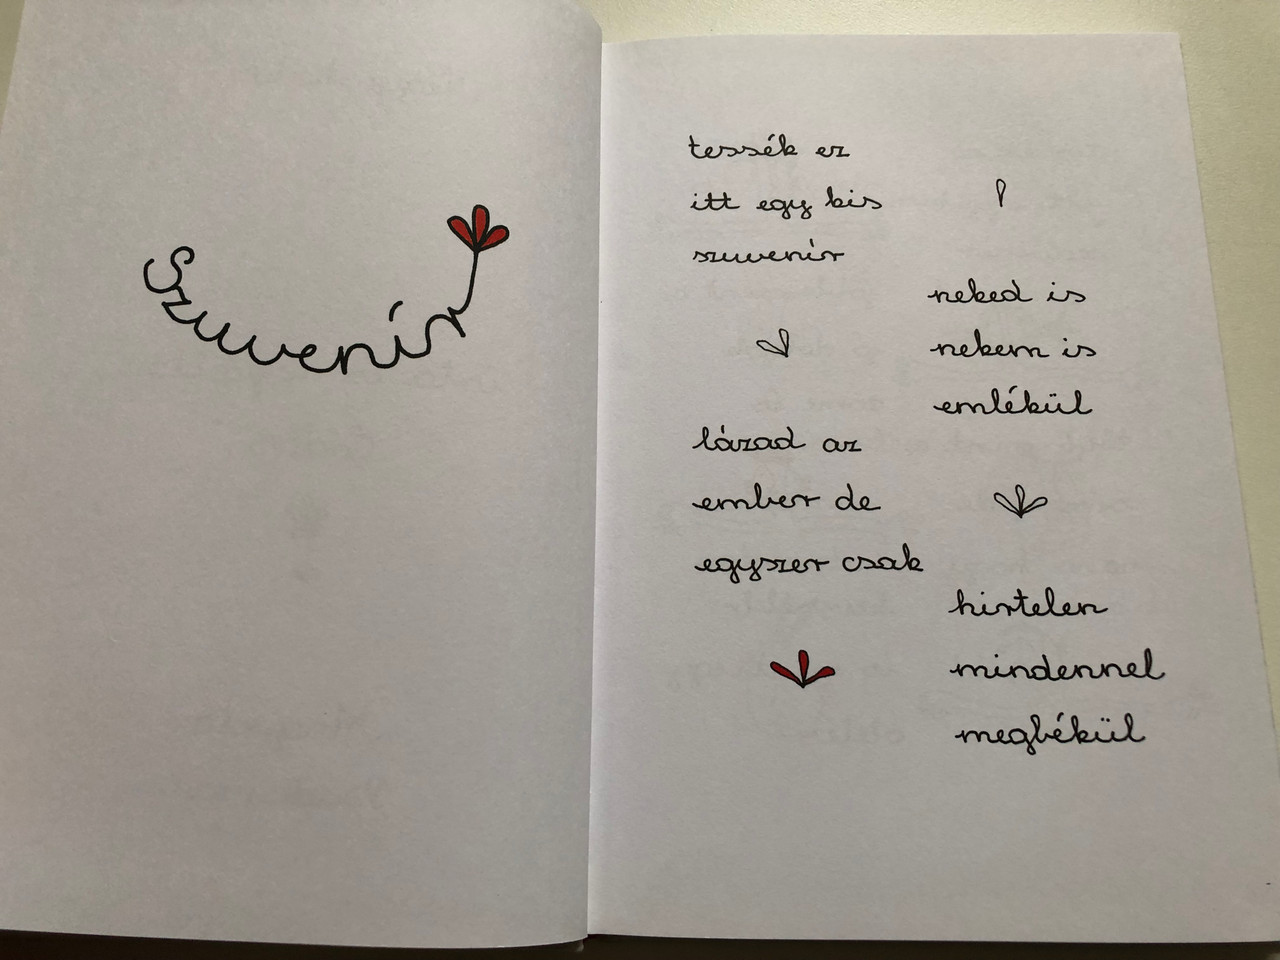 Szuvenír
tessék ez
itt egy kis
szuvenír
neked is
nekem is
emlékül
lázad az
ember de
egyszer csak
hirtelen
mindennel
megbékül